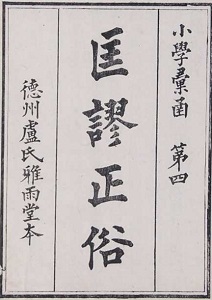 小學彙函 第四
匡謬正俗
德州盧氏雅雨堂本